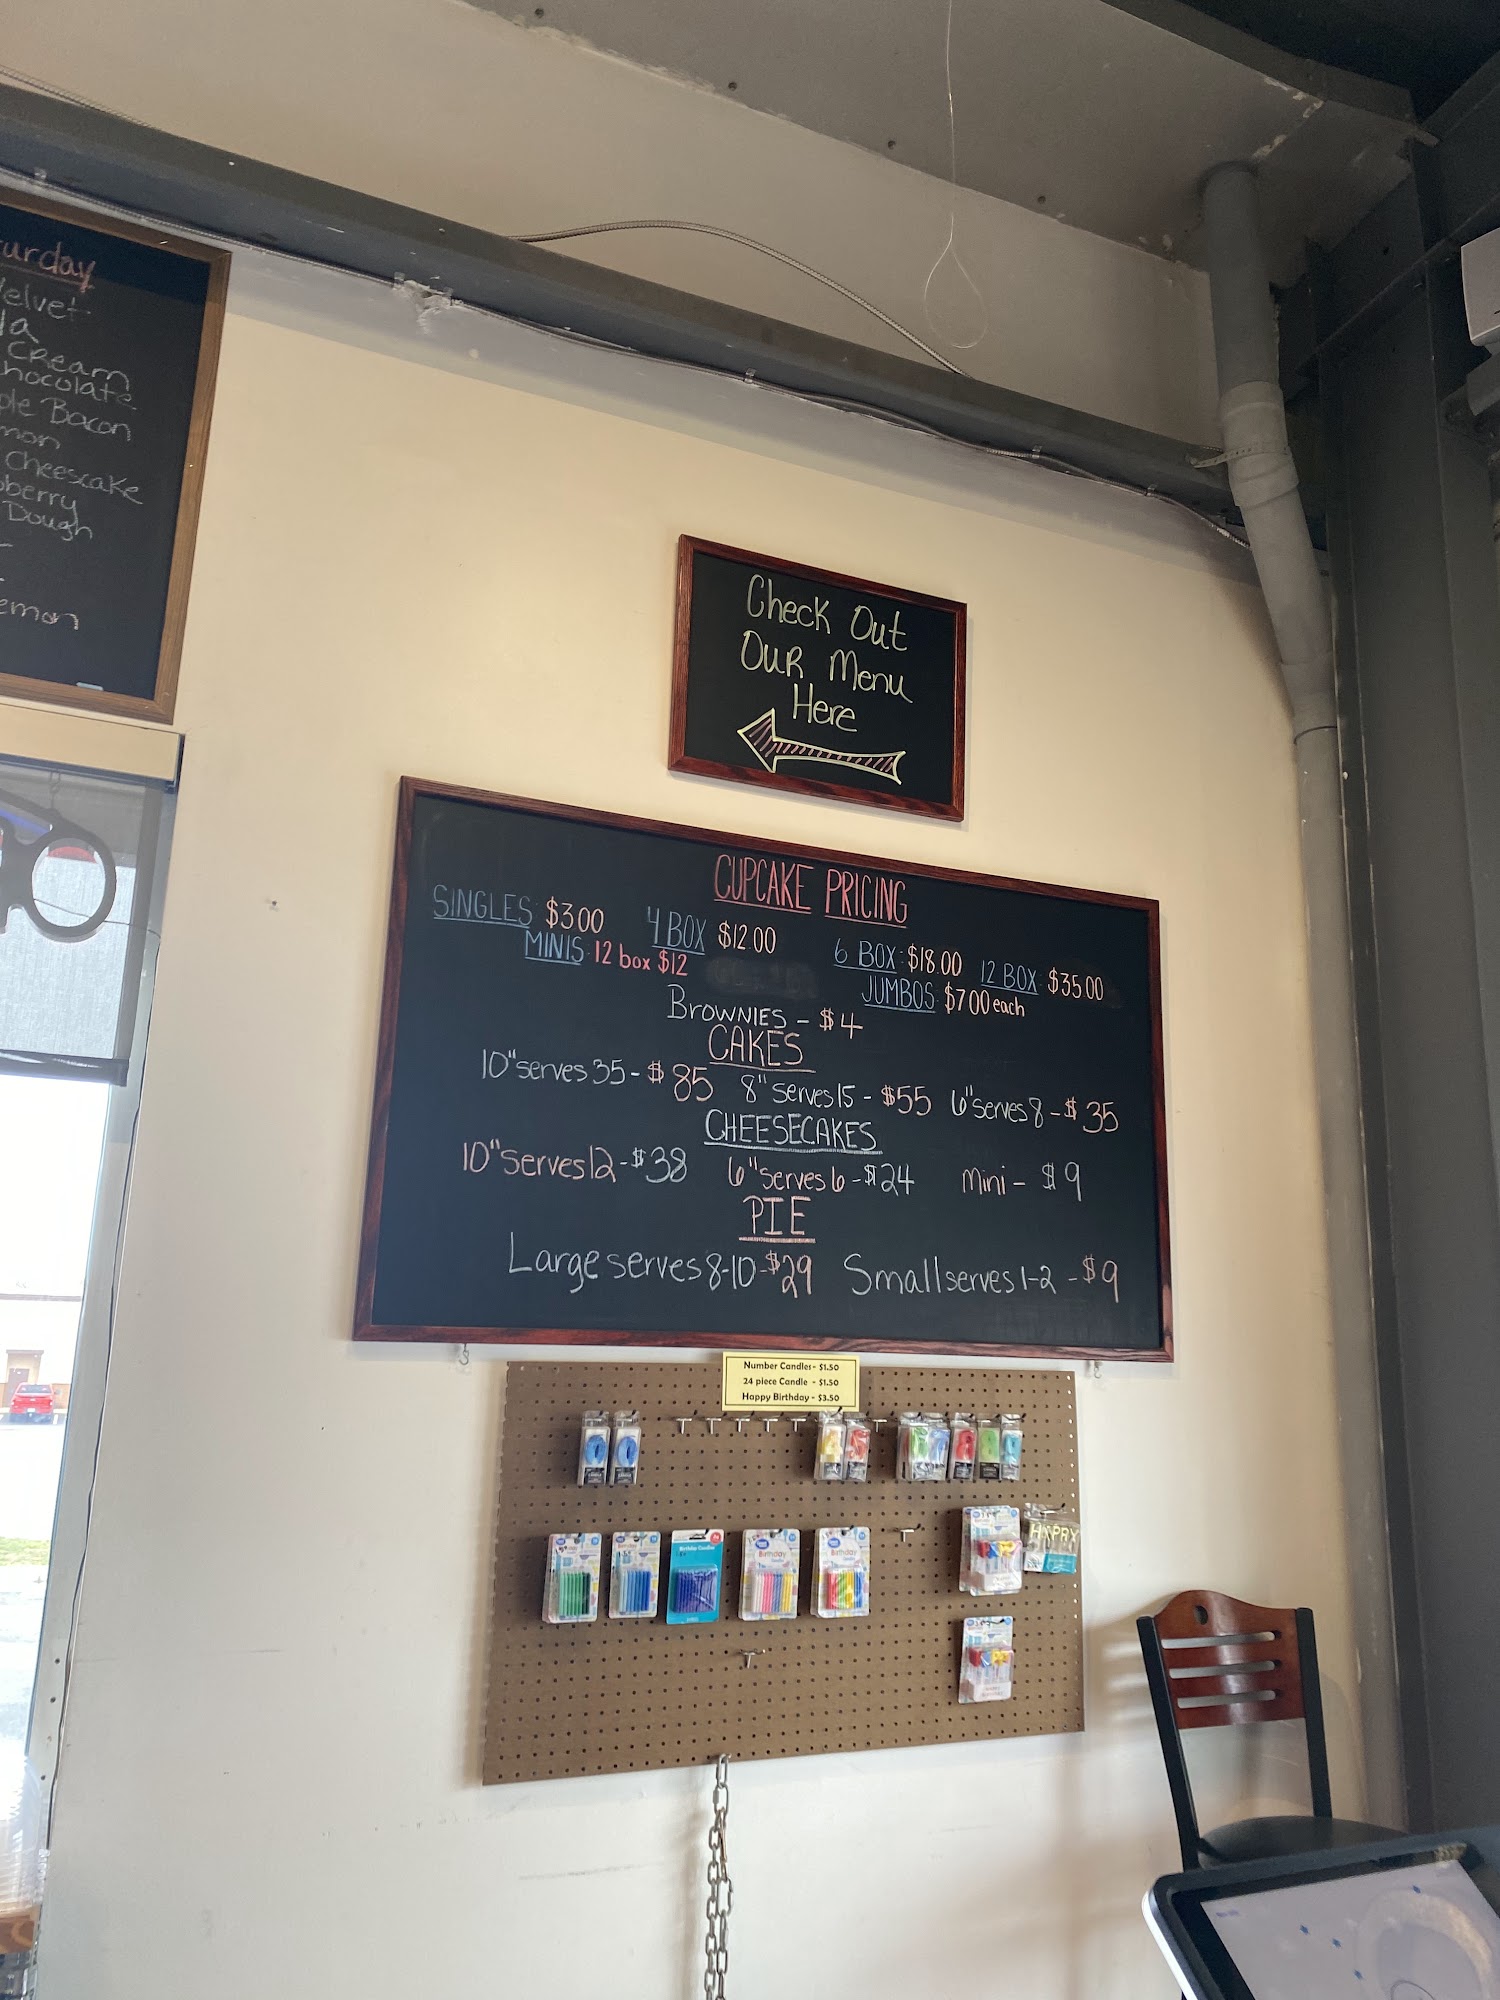 urday
Velvet
la
Cream
hocolate
ple Bacon
mon
Cheescake
berry
Dough
emon
Check Out
Our Menu
Here
CUPCAKE PRICING
SINGLES $3.00 4 BOX $12.00 6 BOX: $18.00 12 BOX: $35.00
MINIS: 12 box $12 JUMBOS: $7.00 each
BROWNIES - $4
CAKES
10" serves 35 - $85 8" serves 15 - $55 6" serves 8 - $35
CHEESECAKES
10" serves 12 - $38 6" serves 6 - $24 mini - $9
PIE
Large serves 8-10 - $29 Small serves 1-2 - $9
Number Candles - $1.50
24 piece Candle - $1.50
Happy Birthday - $3.50
Birthday Candles
Birthday
Birthday
HAPPY